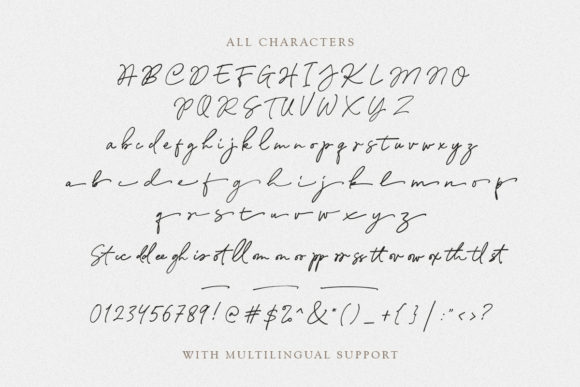 ALL CHARACTERS
ABCDEFGHIJKLMNO
PQRSTUVWXYZ
abcdefghijklmnopqrstuvwxyz
abcdefghijklmnop
qrstuvwxyz
St cc dd ee gh is ot ll om on or pp rr ss tt ov ow ox th tl st
0123456789!@#$%^&*()_+{}/:"<>?
WITH MULTILINGUAL SUPPORT